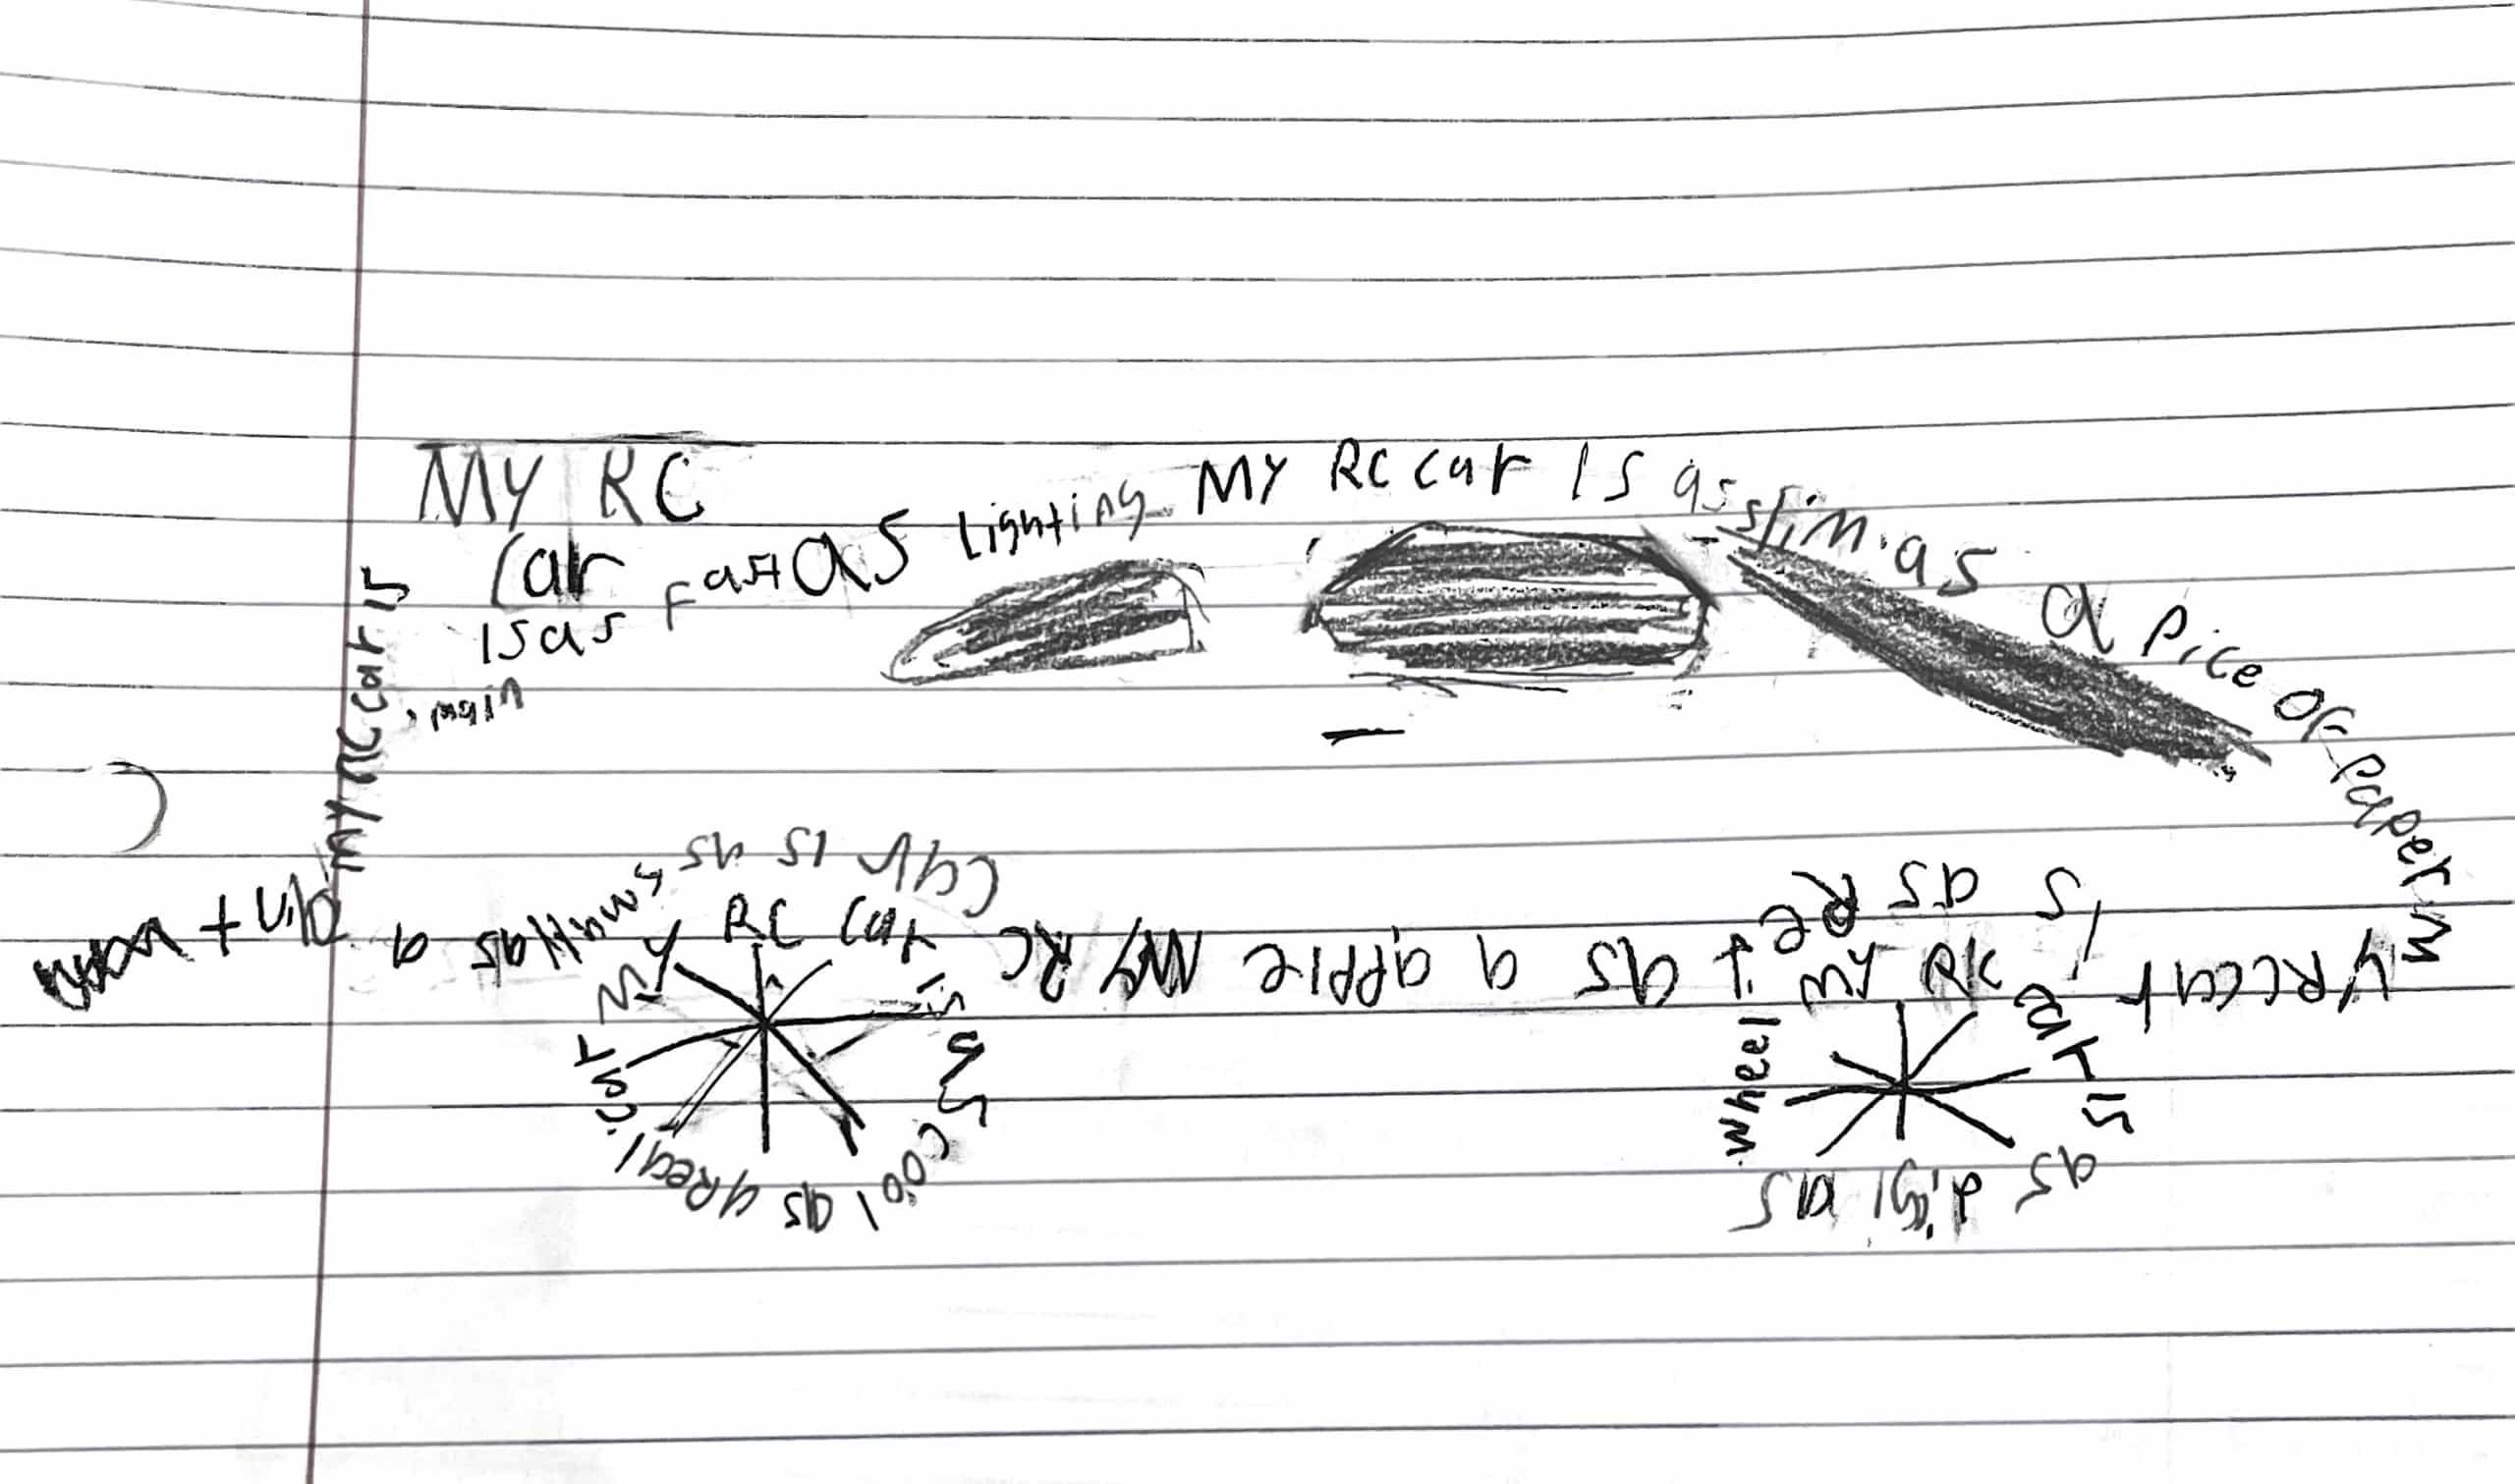 MY RC
Car
is as Fast as Lighting
MY RC car Is as slim as a Pice OF Paper
MY RC car is as Re
t as a apple MY RC
car is as smallas a
my RC car is
main
MY RC car is as cool as a Real car
MY RC car is as as
wheel